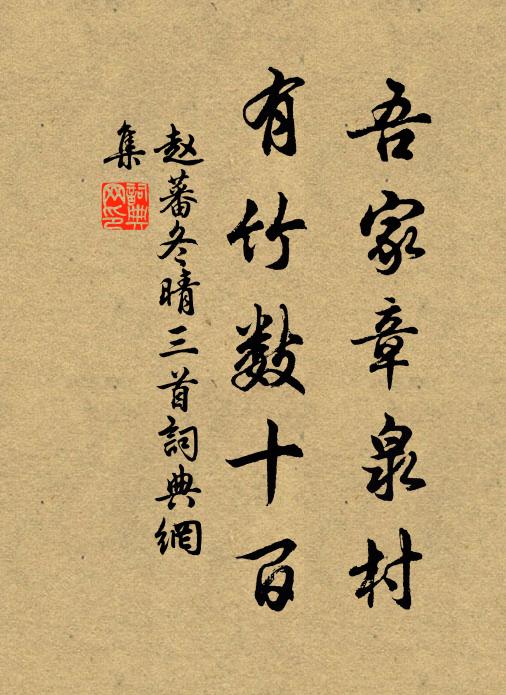 吾家章泉村
有竹数十百
赵蕃冬晴三首詞典網
集
詞典
网印